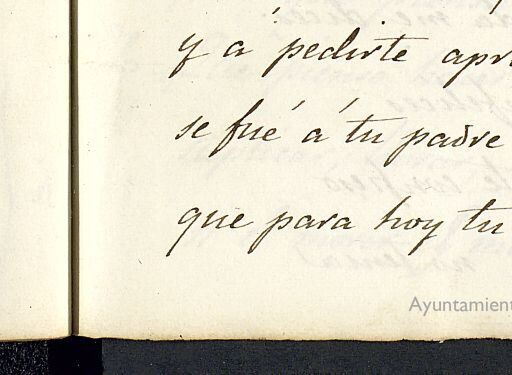 y a pedirte apr
se fué á tu padre
que para hoy tu
Ayuntamient